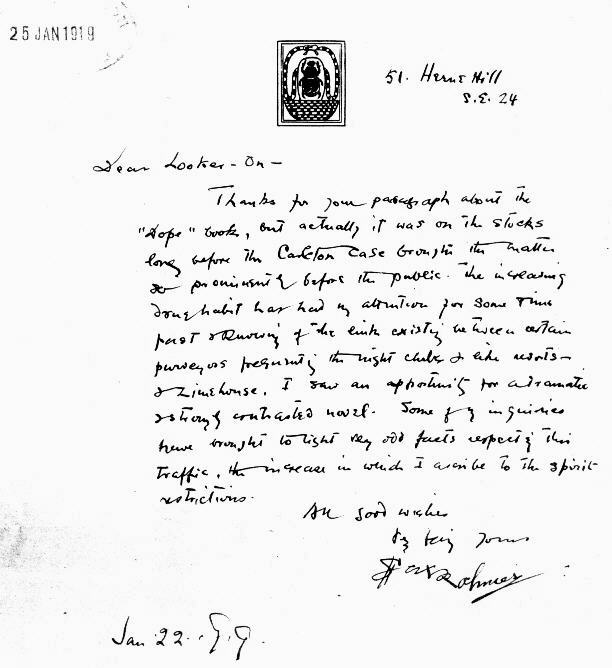 25 JAN 1919
51. Herne Hill
S.E. 24
Dear Looker-On -
Thanks for your paragraph about the
"Dope" book, but actually it was on the stocks
long before the Carleton case brought the matter
so prominently before the public. The increasing
drug habit has had my attention for some time
past & knowing of the link existing between certain
purveyors frequenting the night clubs & like resorts
& Limehouse, I saw an opportunity for a dramatic
& strongly contrasted novel. Some of my inquiries
have brought to light very odd facts respecting this
traffic, the increase in which I ascribe to the spirit
restrictions.
All good wishes
Yours
Sax Rohmer
Jan 22.